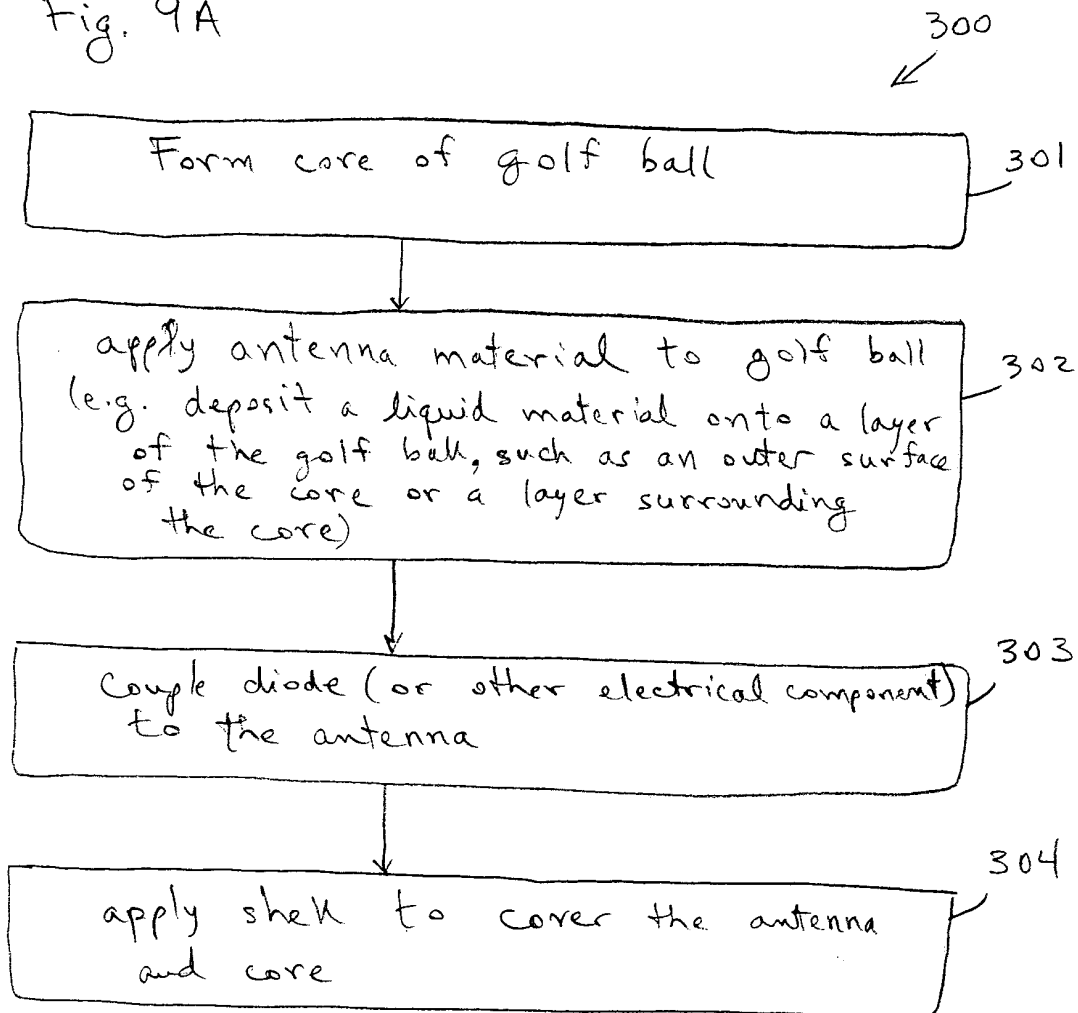 Fig. 9A
300
Form core of golf ball
301
apply antenna material to golf ball
302
(e.g. deposit a liquid material onto a layer
of the golf ball, such as an outer surface
of the core or a layer surrounding
the core)
303
couple diode (or other electrical component)
to the antenna
304
apply shell to cover the antenna
and core